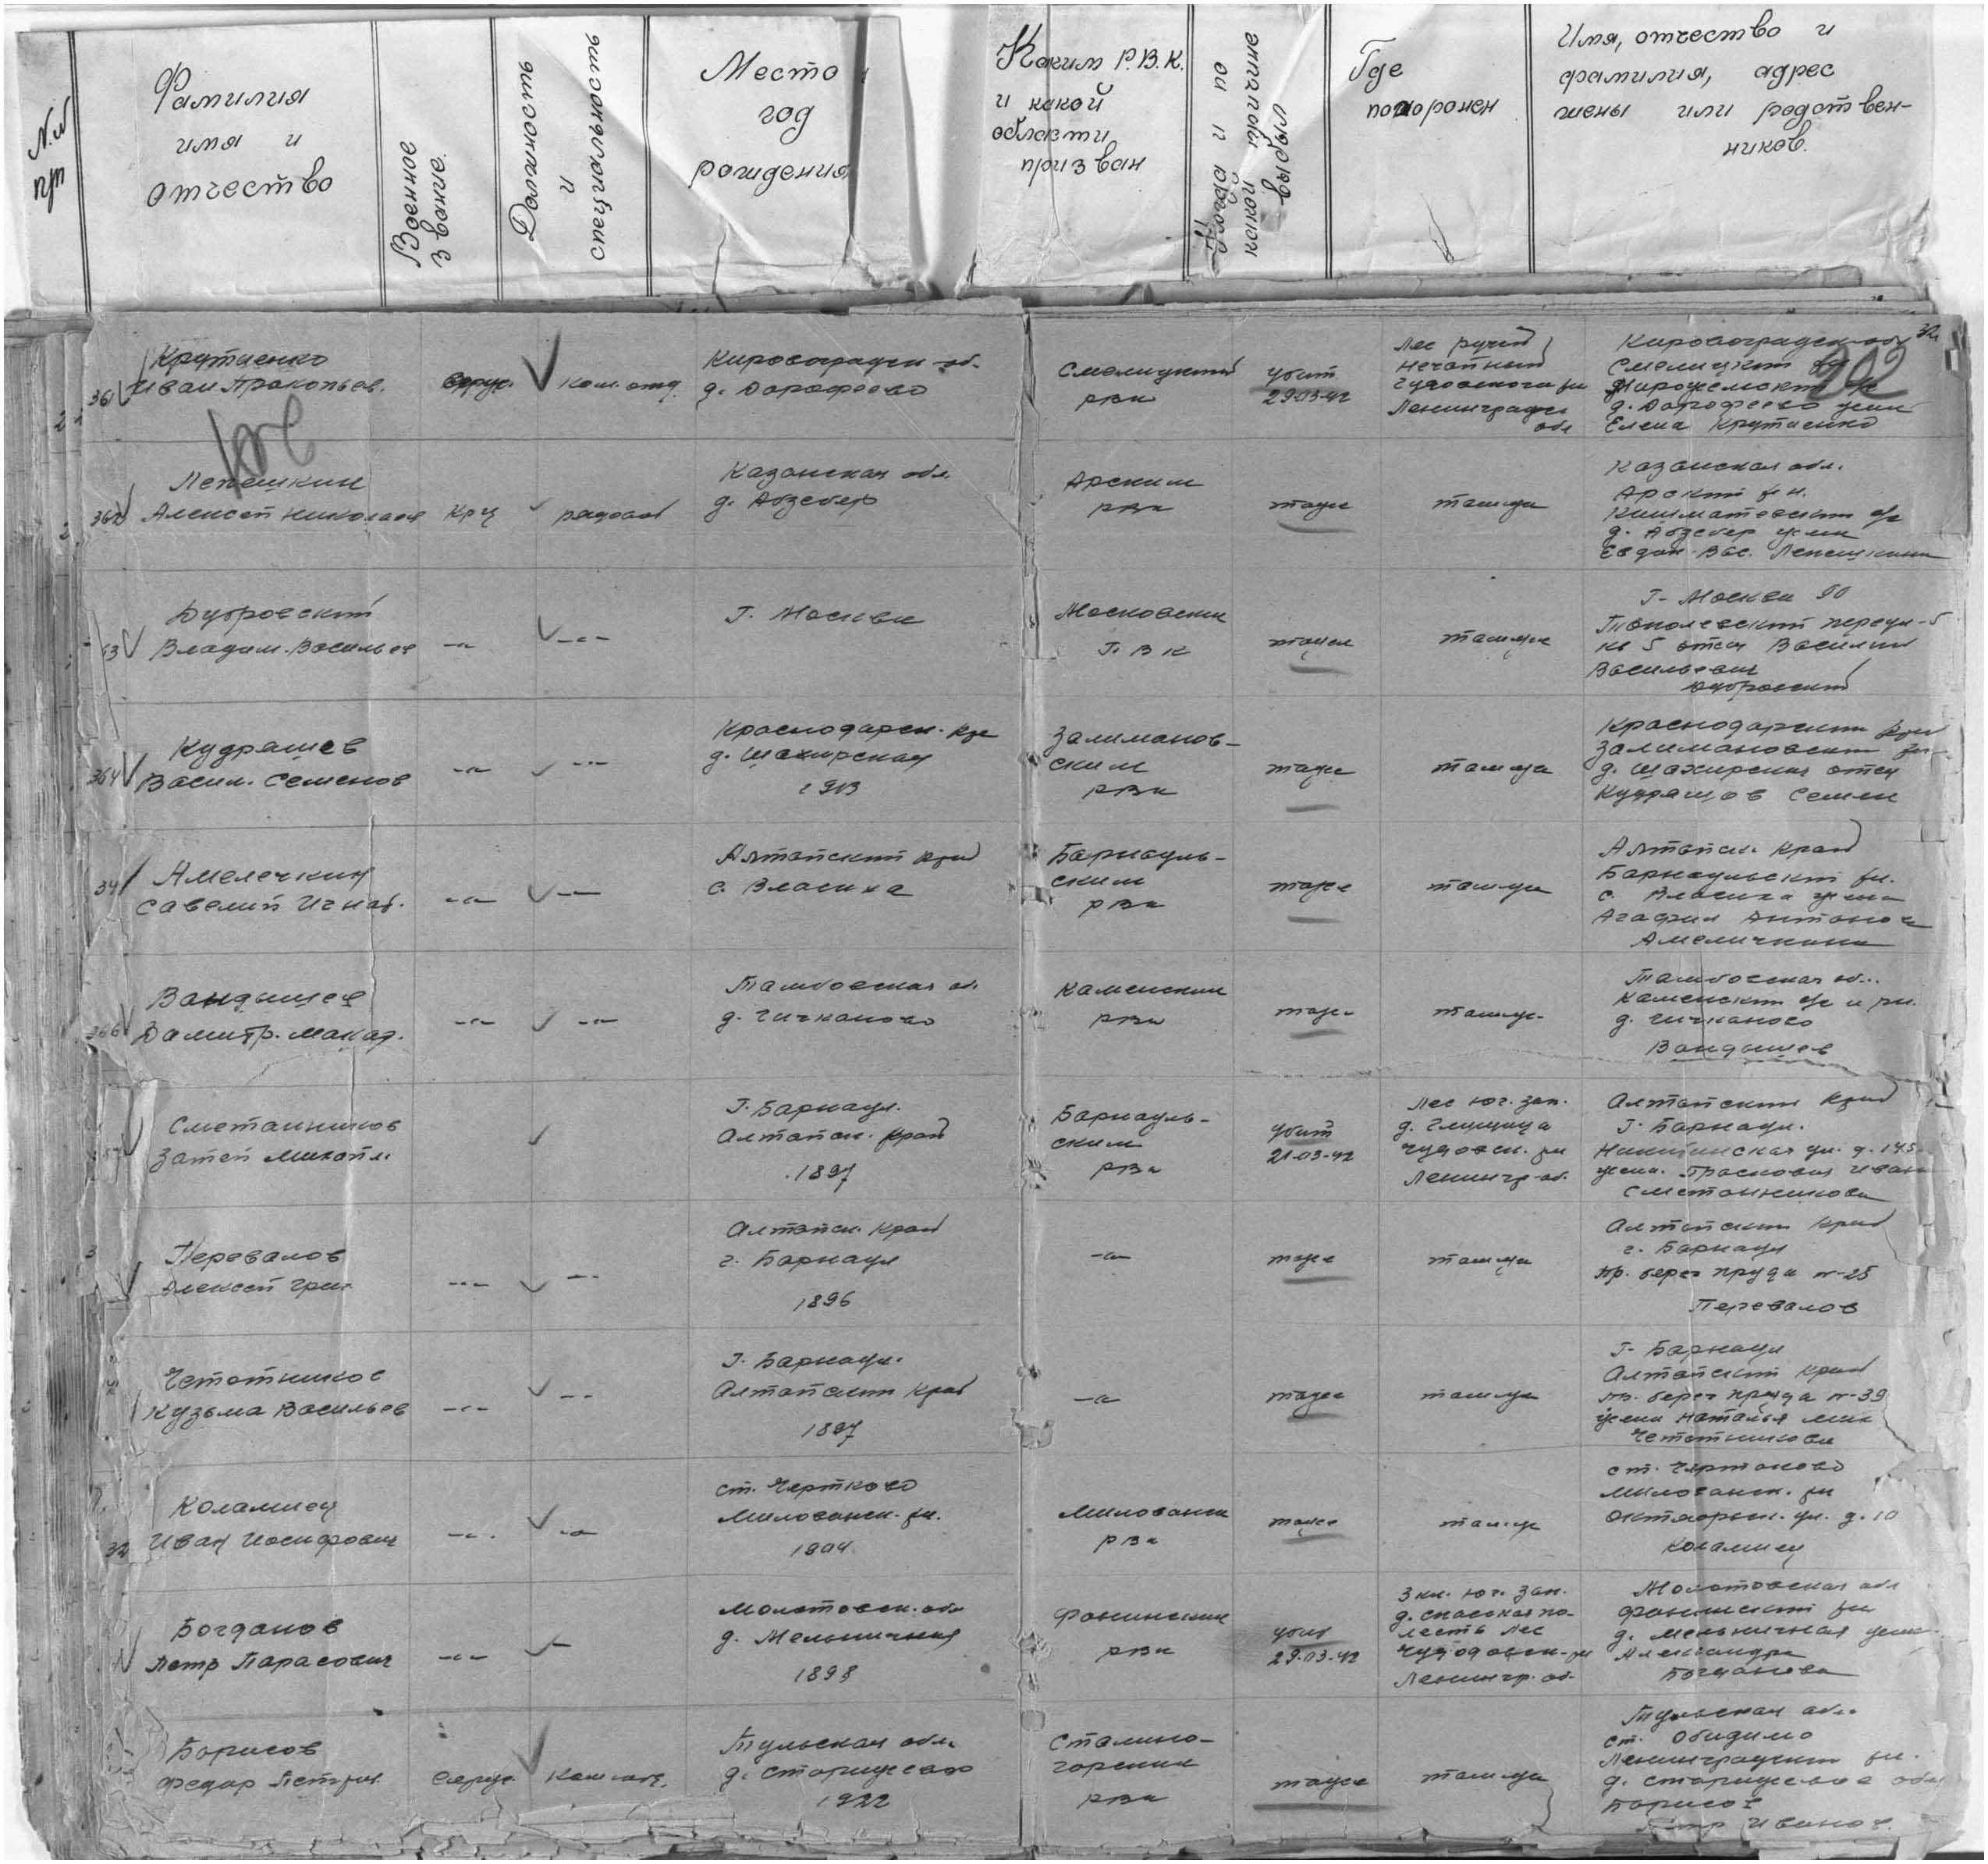 N.N
пп
Фамилия
имя и
отчество
Военное
звание.
Должность
и
специальность
Место
год
рождения
Каким Р.В.К.
и какой
области
призван
Когда и по
какой причине
выбыл
Где
похоронен
Имя, отчество и
фамилия, адрес
жены или родствен-
ников.
202
361 Крутиенко
Иван Прокопьев.
серж.
ком. отд.
Кировоградск. об.
д. Дорофеево
рвк
убит
29.03.42
Лес ручей
Нечатный
Чудовского рн
Ленинградск
обл
Кировоградск об
д. Дорофеево жена
Елена Крутиенко
362 Лепешкин
Алексей Николаев
Крц
рядовой
Казанская обл.
д. Абзебер
Арским
рвк
тоже
там же
Казанская обл.
Арский рн.
д. Абзебер жена
Евдок. Вас. Лепешкина
63 Дубровский
Владим. Васильев
-"-
-"-
Г. Москва
Московским
Г.В.К
тоже
там же
Г. Москва 90
Тополевский переул-5
кв 5 отец Василий
Васильевич
Дубровский
364 Кудряшев
Васил. Семенов
-"-
-"-
Краснодарск. кр
д. Шахирская
1913
Залиманов-
ским
рвк
тоже
там же
Краснодарский край
Залимановский рн-
д. Шахирская отец
Кудряшов Семен
Амелечкин
Савелий Игнат.
-"-
-"-
Алтайский край
с. Власиха
Барнауль-
ским
рвк
тоже
там же
Алтайск. край
Барнаульский рн.
с. Власиха жена
Агафия Антонов
Амеличкина
366 Вандышев
Дмитр. Макар.
-"-
-"-
Тамбовская об.
д. Гичканово
Каменским
рвк
тоже
там же
Тамбовская об.
Каменский с/с и рн.
д. Гичканово
Вандышев
Сметанников
Затей Михайл.
Г. Барнаул.
Алтайск. край
1897
Барнауль-
ским
рвк
убит
21-03-42
Лес юг. зап.
д. Глушица
Чудовск. рн
Ленингр. об.
Алтайский край
Г. Барнаул.
Никитинская ул. д. 145
жена. Прасковия Иван
Сметанникова
Перевалов
Алексей Григ.
-"-
-"-
Алтайск. край
г. Барнаул
1896
-"-
тоже
там же
Алтайский край
г. Барнаул
Пр. берег пруда №-25
Перевалов
Чеготников
Кузьма Васильев
-"-
-"-
Г. Барнаул.
Алтайский край
1897
-"-
тоже
там же
Г. Барнаул
Алтайский край
Пр. берег пруда №-39
жена Наталья Мих
Чеготникова
Коламиец
Иван Иосифович
-"-
-"-
ст. Чертково
Милованск. рн.
1904
Милованск
рвк
тоже
там же
ст. Чертаково
Милованск. рн
Октябрьск. ул. д. 10
Коламиец
Богданов
Петр Тарасович
-"-
-"-
Молотовск. обл
д. Мельничная
1898
Фокинским
рвк
убит
29.03-42
3 км. юг. зап.
д. Спасская по-
лесть лес
Чудовск. рн
Ленингр. об.
Молотовская обл
Фокинский рн
д. Мельничная жена
Александра
Богданова
Борисов
Федор Петров.
Серж.
Ком отд.
Тульская обл.
1922
Сталино-
горским
рвк
тоже
там же
Тульская обл.
ст. Обидимо
Ленинградский рн.
Борисов
Петр Иванов.